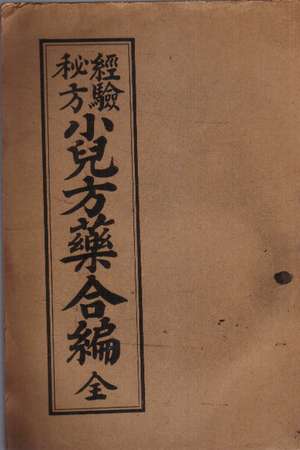 經驗
秘方
小兒方藥合編
全